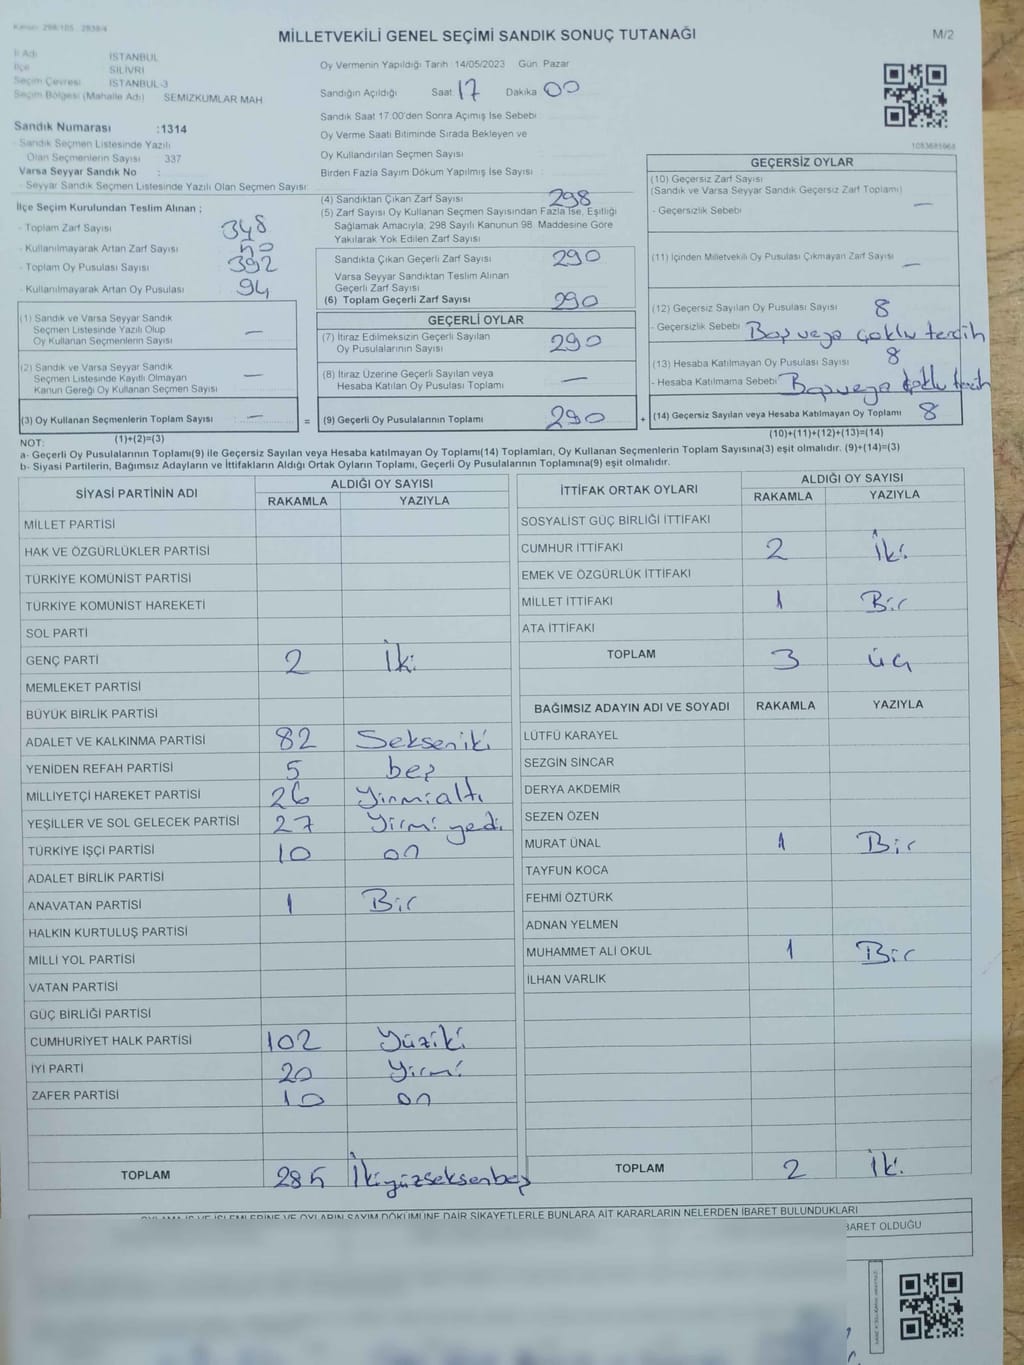 Kanun: 298/105 - 2839/4
MİLLETVEKİLİ GENEL SEÇİMİ SANDIK SONUÇ TUTANAĞI
M/2
İl Adı İSTANBUL
İlçe SİLİVRİ
Seçim Çevresi İSTANBUL-3
Seçim Bölgesi (Mahalle Adı) SEMİZKUMLAR MAH
Sandık Numarası :1314
- Sandık Seçmen Listesinde Yazılı
Olan Seçmenlerin Sayısı : 337
Varsa Seyyar Sandık No :
- Seyyar Sandık Seçmen Listesinde Yazılı Olan Seçmen Sayısı
Oy Vermenin Yapıldığı Tarih :14/05/2023 Gün: Pazar
Sandığın Açıldığı Saat 17 Dakika 00
Sandık Saat 17:00'den Sonra Açımış İse Sebebi
Oy Verme Saati Bitiminde Sırada Bekleyen ve
Oy Kullandırılan Seçmen Sayısı
Birden Fazla Sayım Döküm Yapılmış İse Sayısı
İlçe Seçim Kurulundan Teslim Alınan ;
- Toplam Zarf Sayısı 348
- Kullanılmayarak Artan Zarf Sayısı 50
- Toplam Oy Pusulası Sayısı 392
- Kullanılmayarak Artan Oy Pusulası 94
(1) Sandık ve Varsa Seyyar Sandık
Seçmen Listesinde Yazılı Olup
Oy Kullanan Seçmenlerin Sayısı —
(2) Sandık ve Varsa Seyyar Sandık
Seçmen Listesinde Kayıtlı Olmayan
Kanun Gereği Oy Kullanan Seçmen Sayısı —
(3) Oy Kullanan Seçmenlerin Toplam Sayısı —
(1)+(2)=(3)
(4) Sandıktan Çıkan Zarf Sayısı 298
(5) Zarf Sayısı Oy Kullanan Seçmen Sayısından Fazla İse, Eşitliği
Sağlamak Amacıyla; 298 Sayılı Kanunun 98. Maddesine Göre
Yakılarak Yok Edilen Zarf Sayısı
Sandıkta Çıkan Geçerli Zarf Sayısı 290
Varsa Seyyar Sandıktan Teslim Alınan
Geçerli Zarf Sayısı
(6) Toplam Geçerli Zarf Sayısı 290
GEÇERLİ OYLAR
(7) İtiraz Edilmeksizin Geçerli Sayılan
Oy Pusulalarının Sayısı 290
(8) İtiraz Üzerine Geçerli Sayılan veya
Hesaba Katılan Oy Pusulası Toplamı —
= (9) Geçerli Oy Pusulalarının Toplamı 290 +
1083685968
GEÇERSİZ OYLAR
(10) Geçersiz Zarf Sayısı
(Sandık ve Varsa Seyyar Sandık Geçersiz Zarf Toplamı) —
- Geçersizlik Sebebi
(11) İçinden Milletvekili Oy Pusulası Çıkmayan Zarf Sayısı —
(12) Geçersiz Sayılan Oy Pusulası Sayısı 8
- Geçersizlik Sebebi Boş veya çoklu tercih
(13) Hesaba Katılmayan Oy Pusulası Sayısı 8
- Hesaba Katılmama Sebebi Boş veya çoklu tercih
(14) Geçersiz Sayılan veya Hesaba Katılmayan Oy Toplamı 8
(10)+(11)+(12)+(13)=(14)
NOT:
a- Geçerli Oy Pusulalarının Toplamı(9) ile Geçersiz Sayılan veya Hesaba katılmayan Oy Toplamı(14) Toplamları, Oy Kullanan Seçmenlerin Toplam Sayısına(3) eşit olmalıdır. (9)+(14)=(3)
b- Siyasi Partilerin, Bağımsız Adayların ve İttifakların Aldığı Ortak Oyların Toplamı, Geçerli Oy Pusulalarının Toplamına(9) eşit olmalıdır.
SİYASİ PARTİNİN ADI ALDIĞI OY SAYISI
RAKAMLA YAZIYLA
MİLLET PARTİSİ
HAK VE ÖZGÜRLÜKLER PARTİSİ
TÜRKİYE KOMÜNİST PARTİSİ
TÜRKİYE KOMÜNİST HAREKETİ
SOL PARTİ
GENÇ PARTİ 2 İki
MEMLEKET PARTİSİ
BÜYÜK BİRLİK PARTİSİ
ADALET VE KALKINMA PARTİSİ 82 Sekseniki
YENİDEN REFAH PARTİSİ 5 beş
MİLLİYETÇİ HAREKET PARTİSİ 26 Yirmialtı
YEŞİLLER VE SOL GELECEK PARTİSİ 27 Yirmi yedi
TÜRKİYE İŞÇİ PARTİSİ 10 on
ADALET BİRLİK PARTİSİ
ANAVATAN PARTİSİ 1 Bir
HALKIN KURTULUŞ PARTİSİ
MİLLİ YOL PARTİSİ
VATAN PARTİSİ
GÜÇ BİRLİĞİ PARTİSİ
CUMHURİYET HALK PARTİSİ 102 Yüziki
İYİ PARTİ 20 Yirmi
ZAFER PARTİSİ 10 on
TOPLAM 285 İkiyüzseksenbeş
İTTİFAK ORTAK OYLARI ALDIĞI OY SAYISI
RAKAMLA YAZIYLA
SOSYALİST GÜÇ BİRLİĞİ İTTİFAKI
CUMHUR İTTİFAKI 2 İki
EMEK VE ÖZGÜRLÜK İTTİFAKI
MİLLET İTTİFAKI 1 Bir
ATA İTTİFAKI
TOPLAM 3 üç
BAĞIMSIZ ADAYIN ADI VE SOYADI RAKAMLA YAZIYLA
LÜTFÜ KARAYEL
SEZGİN SİNCAR
DERYA AKDEMİR
SEZEN ÖZEN
MURAT ÜNAL 1 Bir
TAYFUN KOCA
FEHMİ ÖZTÜRK
ADNAN YELMEN
MUHAMMET ALİ OKUL 1 Bir
İLHAN VARLIK
TOPLAM 2 İki
OYLAMA İŞ VE İŞLEMLERİNE VE OYLARIN SAYIM DÖKÜMÜNE DAİR ŞİKAYETLERLE BUNLARA AİT KARARLARIN NELERDEN İBARET BULUNDUKLARI
BARET OLDUĞU